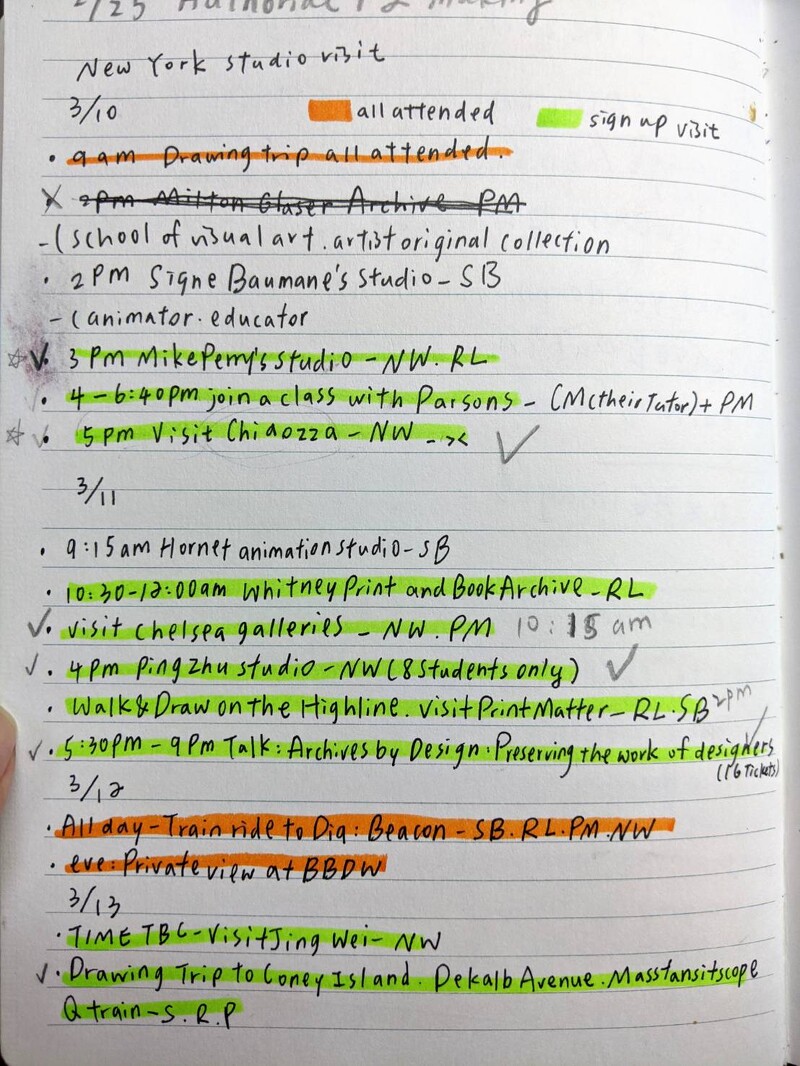 2/25 Authorial P2 making
New York studio visit
3/10 all attended sign up visit
• 9am Drawing trip all attended.
X 2pm Milton Glaser Archive - PM
- (school of visual art. artist original collection
• 2PM Signe Baumane's Studio - SB
- (animator. educator
☆ ✓• 3 Pm Mike Perry's studio - NW. RL
• 4 - 6:40pm join a class with Parsons - (MC their Tutor) + PM
☆ ✓• 5pm Visit Chiaozza - NW - >< ✓
3/11
• 9:15am Hornet animation studio - SB
• 10:30-12:00am Whitney Print and Book Archive - RL
✓• visit chelsea galleries - NW. PM 10:15 am
✓• 4pm Ping Zhu studio - NW (8 Students only) ✓
• Walk & Draw on the Highline. visit Print Matter - RL. SB 2pm
✓• 5:30PM - 9Pm Talk: Archives by Design: Preserving the work of designers
(16 Tickets)
3/12
• All day - Train ride to Dia: Beacon - SB. RL. PM. NW
• eve: Private view at BBDW
3/13
• TIME TBC - Visit Jing Wei - NW
✓• Drawing Trip to Coney Island. Dekalb Avenue. Masstansitscope
Q train - S. R. P